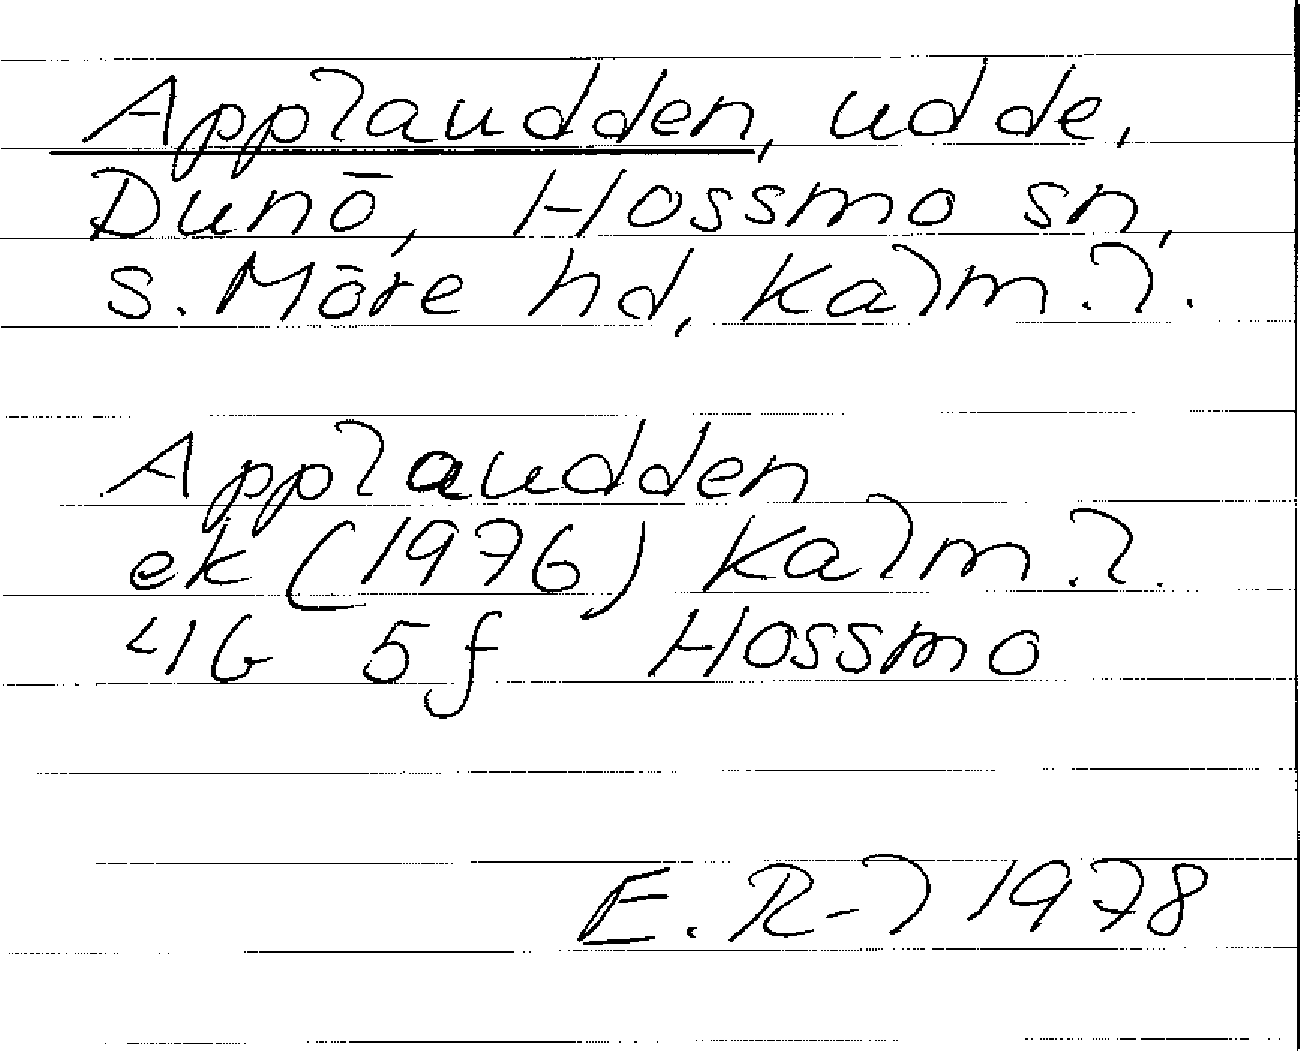 Applaudden, udde,
Dunö, Hossmo sn,
s. Möre hd, Kalm. l.
Applaudden
ek (1976) Kalm. l.
4G 5f Hossmo
E. R-l 1978